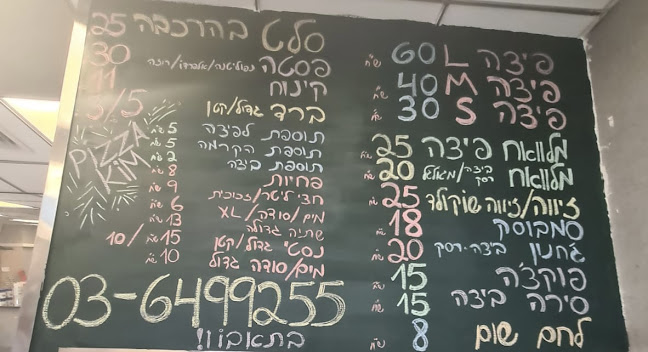 פיצה L 60 ש"ח
פיצה M 40 ש"ח
פיצה S 30 ש"ח
מלוואח פיצה 25 ש"ח
מלוואח ביצה/ רסק 20 ש"ח
זיווה/זיווה שוקולד 25 ש"ח
סמבוסק 18 ש"ח
ג'חנון ביצה-רסק 20 ש"ח
פוקצ'ה 15
סירה ביצה 15 ש"ח
לחם שום 8 ש"ח
סלט בהרכבה 25
פסטה נפוליטנה/אלפרדו/רוזה 30
קינוח 11
ברד גדול/קטן /5
תוספת לפיצה 5 ש"ח
תוספת הקרמה 5 ש"ח
תוספת ביצה 2 ש"ח
פחיות 8 ש"ח
חצי ליטר/זכוכית 9 ש"ח
מים/סודה/XL 6 ש"ח
שתיה גדולה 13 ש"ח
נסטי גדול/קטן 15 ש"ח /10
מים/סודה גדול 10 ש"ח
PIZZA
KIM
03-6499255
בתאבון!